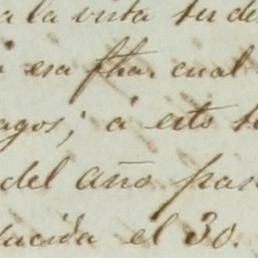 a la vista su de
esa fha. cual
agos; á esto
del año pas
ucida el 30.